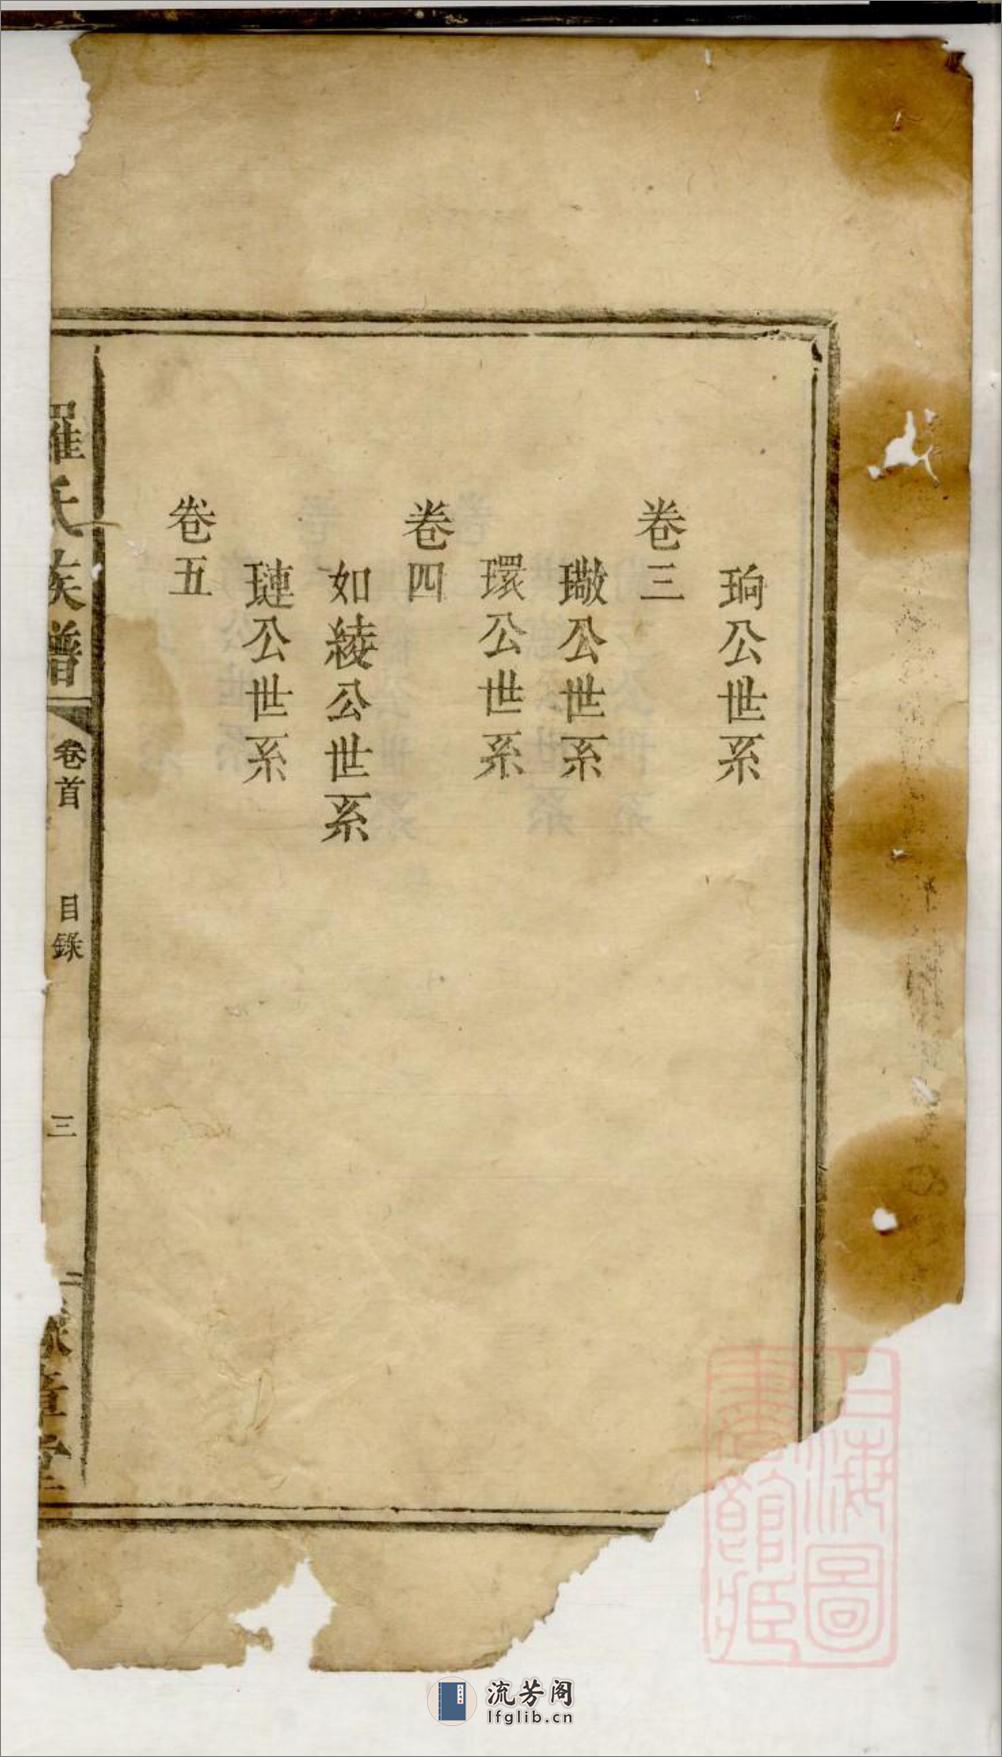 珦公世系
卷三
璥公世系
環公世系
卷四
如綾公世系
璉公世系
卷五
羅氏族譜
卷首
目錄
三
章堂
上海圖
書館
流芳阁
lfglib.cn